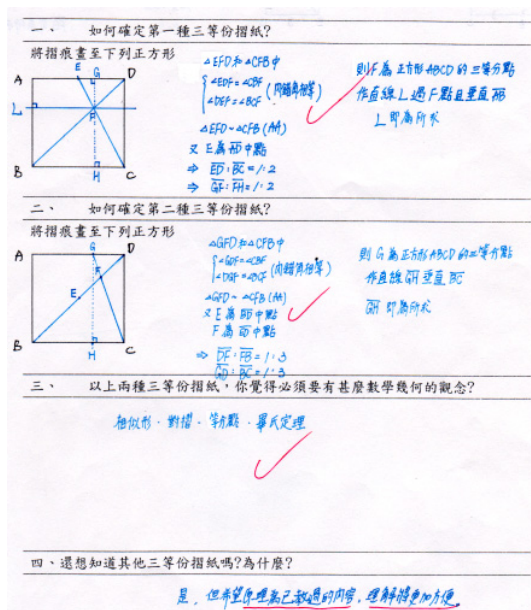 一、 如何確定第一種三等份摺紙?
將摺痕畫至下列正方形
A E G D
L F
B H C
△EFD和△CFB中
∠EDF=∠CBF
∠DEF=∠BCF
(內錯角相等)
△EFD~△CFB (AA)
又 E為AD中點
⇒ ED:BC=1:2
⇒ GF:FH=1:2
則F為正方形ABCD的三等分點
作直線L過F點且垂直AB
L即為所求
二、 如何確定第二種三等份摺紙?
將摺痕畫至下列正方形
A G D
F
E
B H C
△GFD和△CFB中
∠GDF=∠CBF
∠DGF=∠BCF
(內錯角相等)
△GFD~△CFB (AA)
又E為BD中點
F為ED中點
⇒ DF:FB=1:3
GD:BC=1:3
則G為正方形ABCD的三等分點
作直線GH垂直BC
GH即為所求
三、 以上兩種三等份摺紙,你覺得必須要有甚麼數學幾何的觀念?
相似形、對摺、等分點、畢氏定理
四、還想知道其他三等份摺紙嗎?為什麼?
是,但希望原理為已教過的內容,理解將更加方便